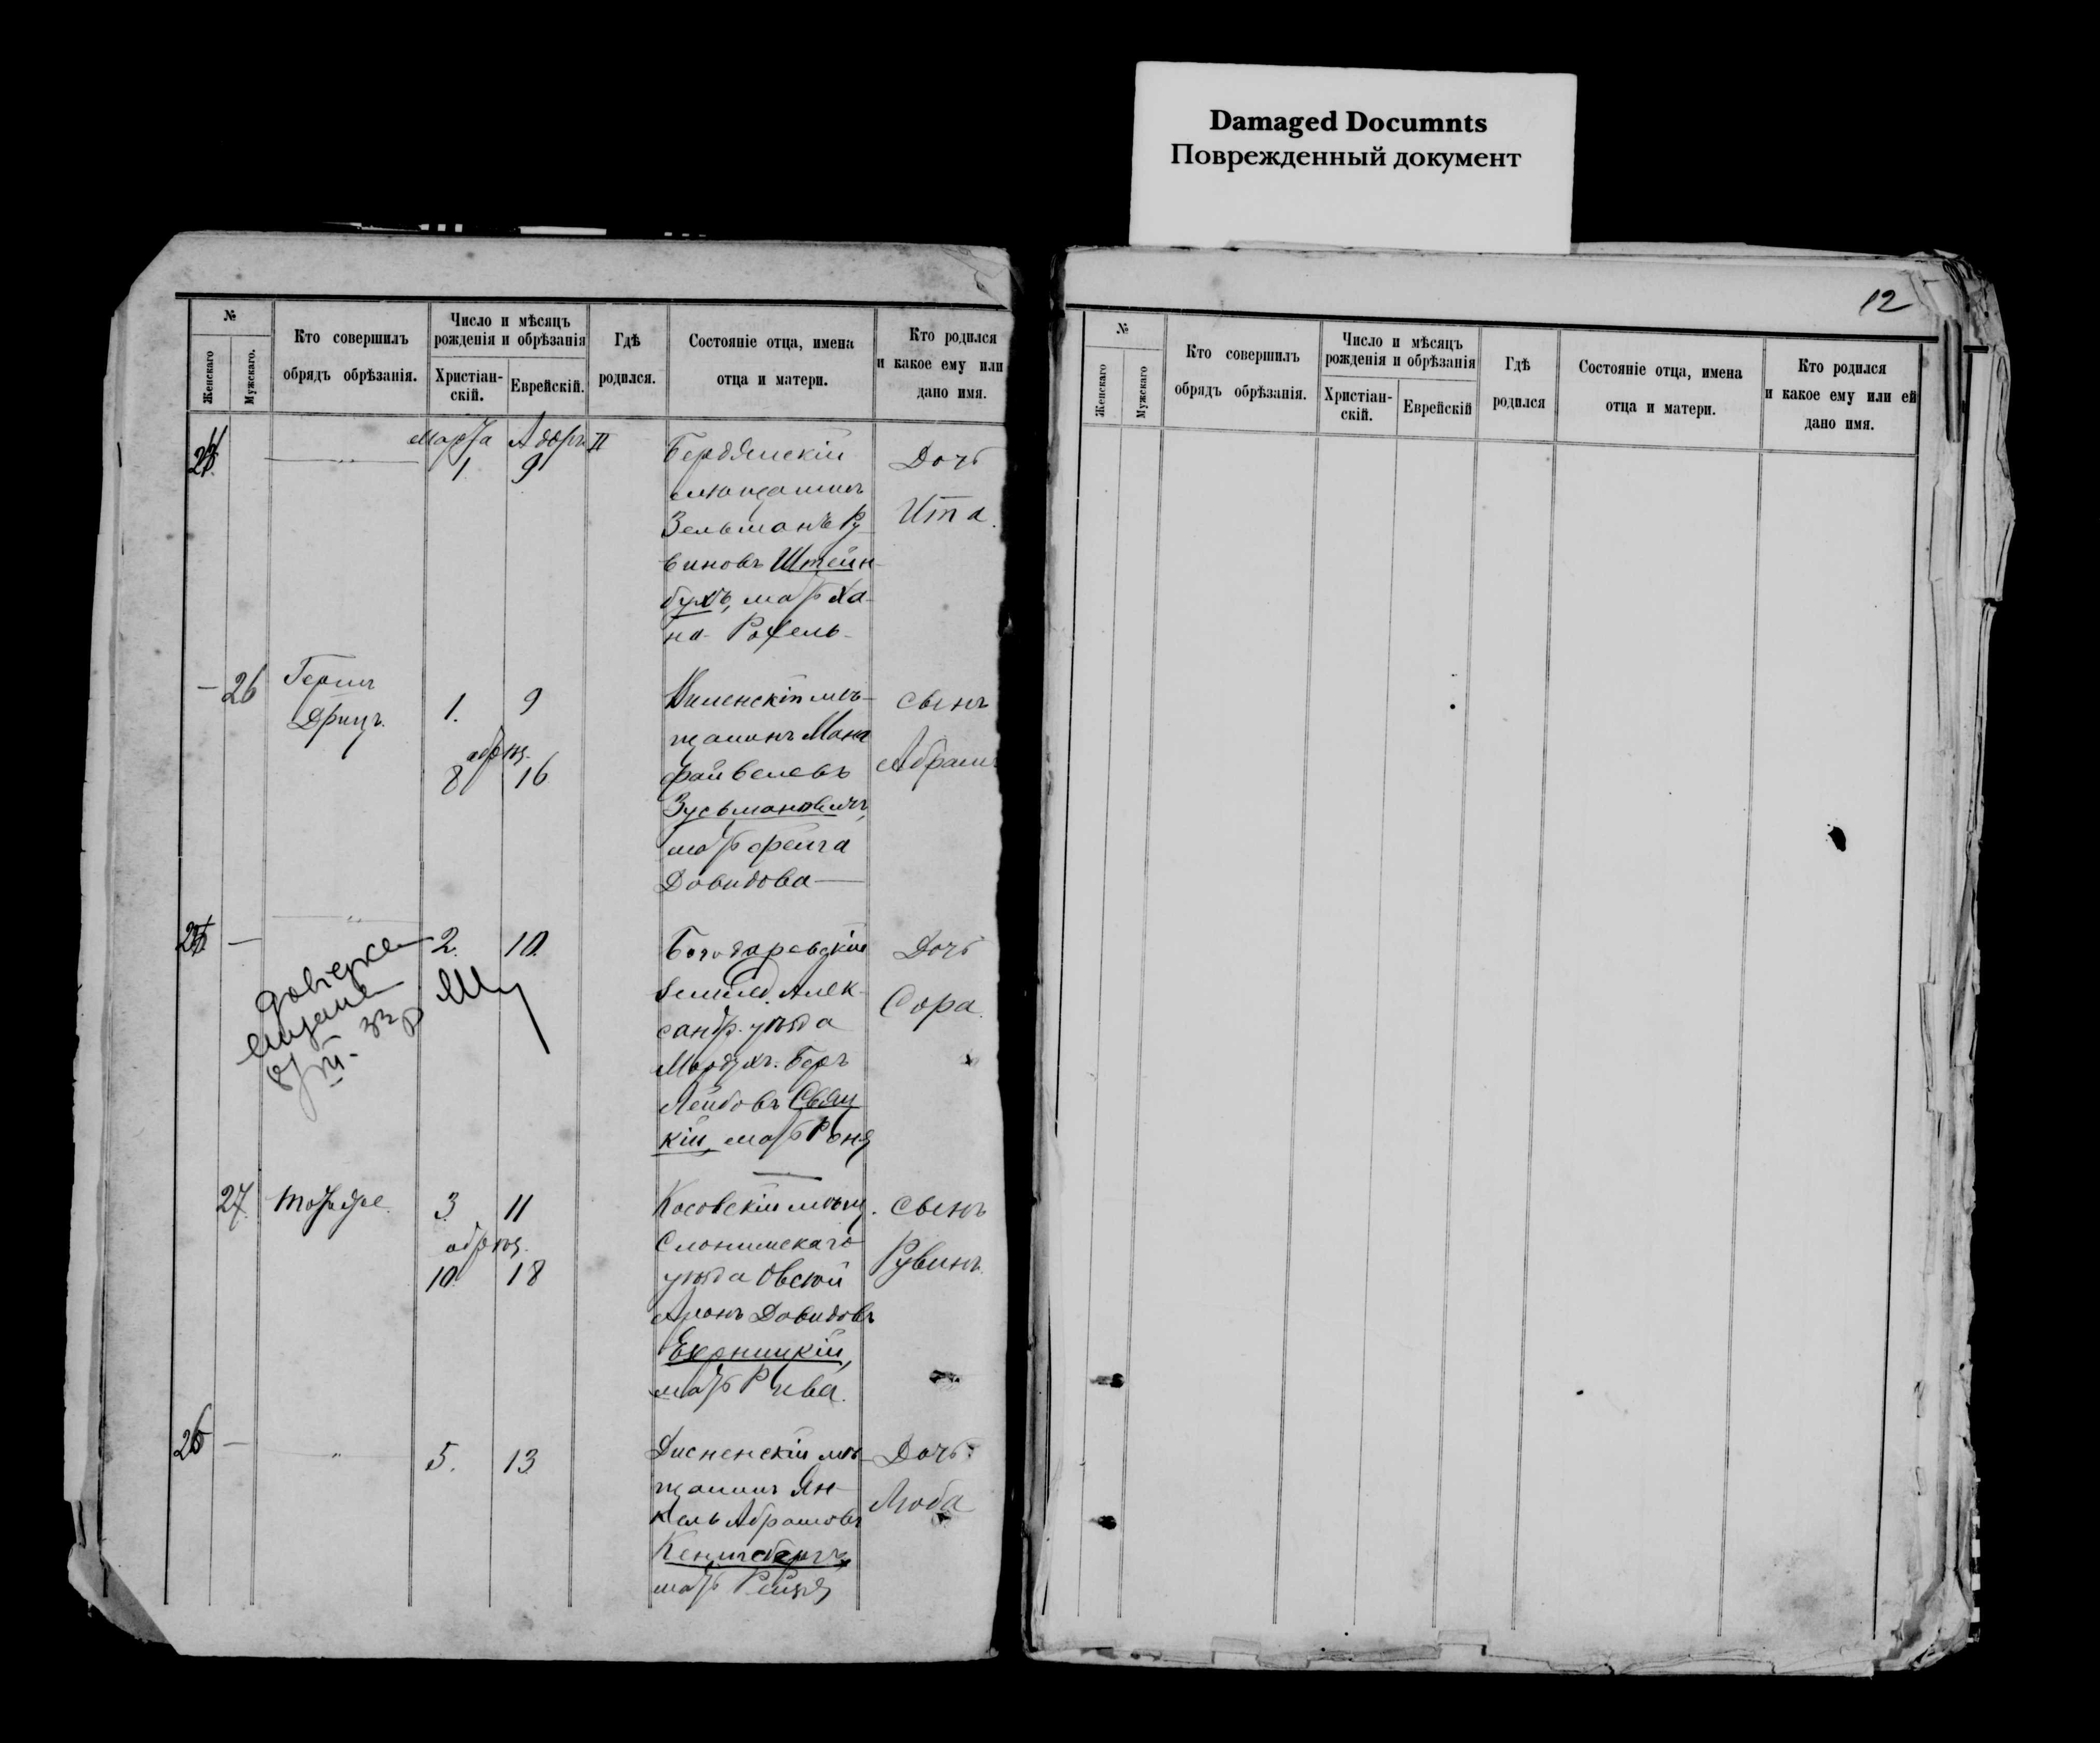 Damaged Documnts
Поврежденный документ
№
Женскаго
Мужскаго.
Кто совершилъ
обрядъ обрѣзанія.
Число и мѣсяцъ
рожденія и обрѣзанія
Христіан-
скій.
Еврейскій.
Гдѣ
родился.
Состояніе отца, имена
отца и матери.
Кто родился
и какое ему или
дано имя.
Марта Адоръ II
1 9
Бердянскій
мѣщанинъ
Зельманъ Ру
виновъ Штейн-
бухъ, мать Ха-
на-Рохель
Дочь
Ита.
— 26
Герцъ
Дрицъ.
1. 9
обрѣз.
8 16
Виленскій мѣ-
щанинъ Мана
Файвелевъ
Зусьмановичъ,
мать Фейга
Довидова
сынъ
Абрамъ
25 —
2. 10.
Богодаревскій
Алек-
сандр. уѣзда
Мордухъ-Беръ
Лейбовъ Свяц
кій, мать Роня
Дочь
Сора.
27.
Тотъ же.
3 11
обрѣз.
10. 18
Косовскій мѣщ.
Слонимскаго
уѣзда Овсей
Аронъ Довидовъ
мать Рива.
сынъ
Рувинъ.
26 —
5. 13
Дисненскій мѣ-
щанинъ Ян-
кель Абрамовъ
Кенигсбергъ,
мать Рейзя
Дочь
Люба
12
№
Женскаго
Мужскаго
Кто совершилъ
обрядъ обрѣзанія.
Число и мѣсяцъ
рожденія и обрѣзанія
Христіан-
скій.
Еврейскій
Гдѣ
родился
Состояніе отца, имена
отца и матери.
Кто родился
и какое ему или ей
дано имя.